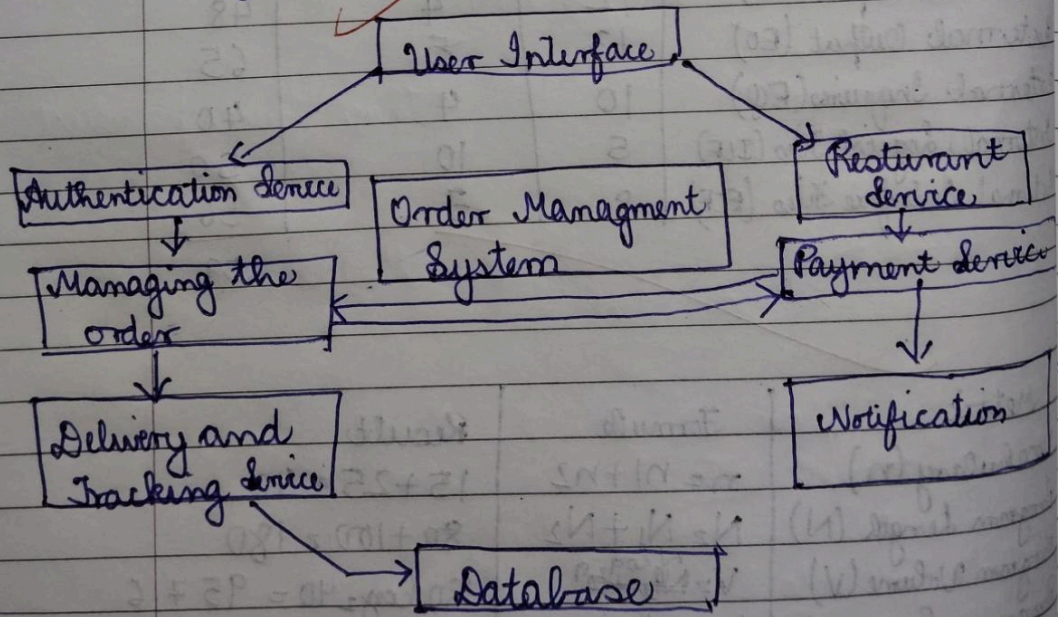 User Interface
Authentication Service
Order Managment
System
Resturant
Service
Managing the
order
Payment Service
Delivery and
Tracking Service
Notification
Database